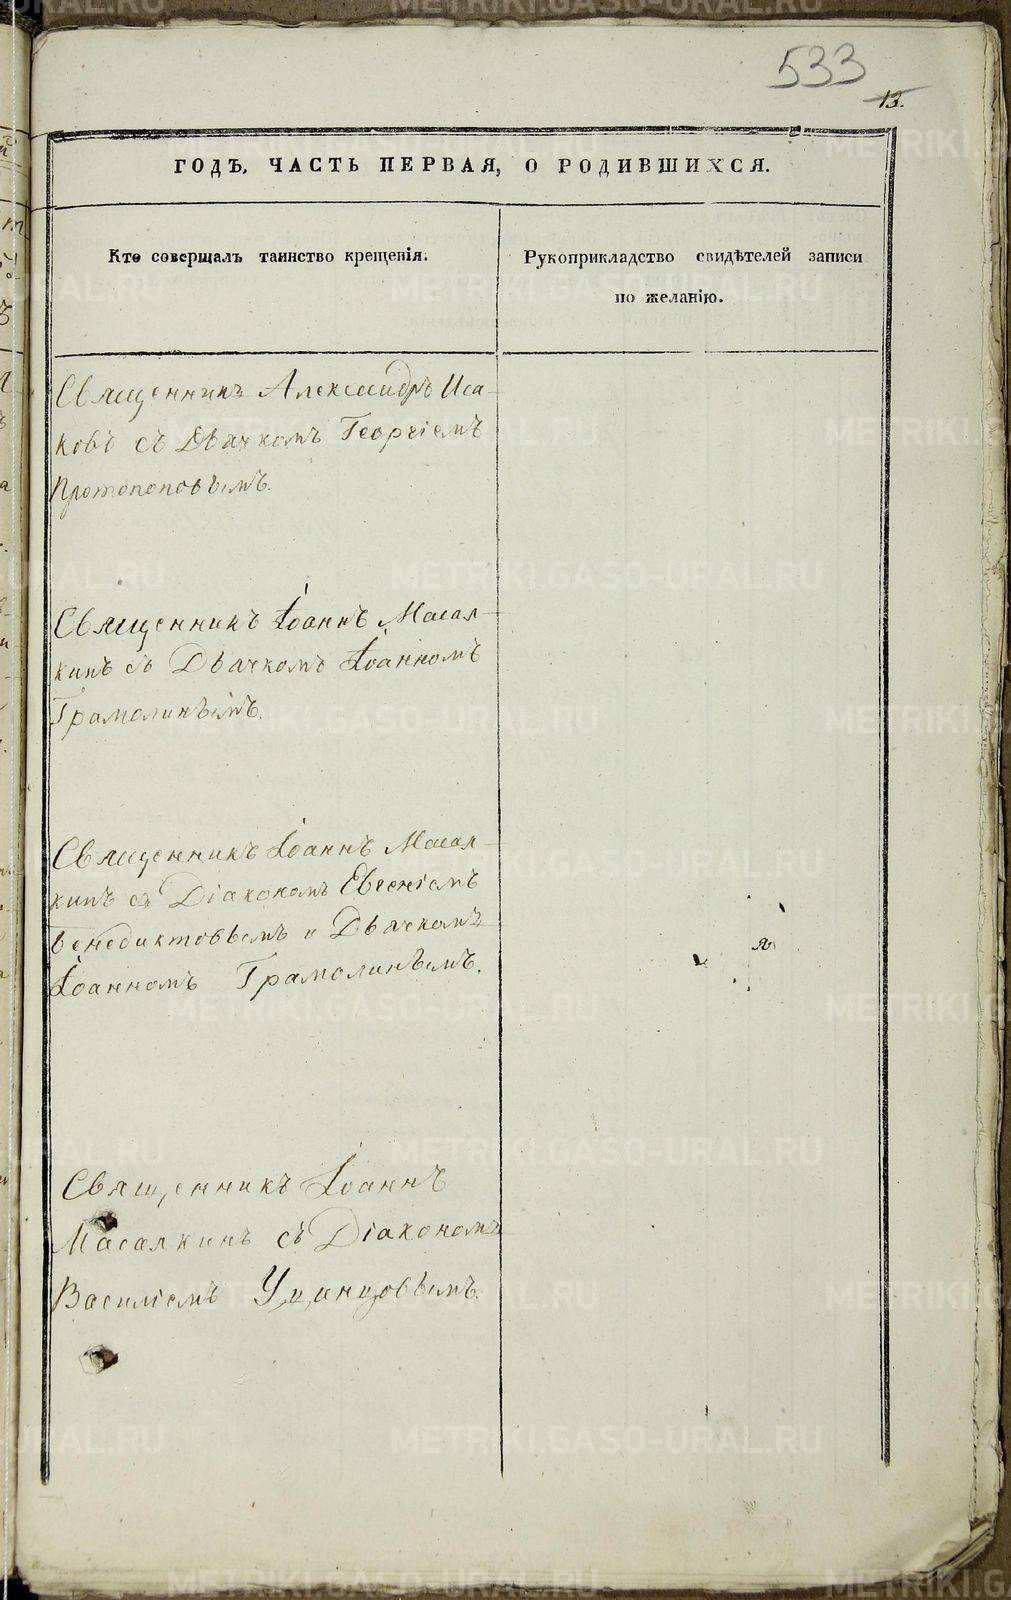 533
13.
ГОДЪ, ЧАСТЬ ПЕРВАЯ, О РОДИВШИХСЯ.
Кто совершалъ таинство крещенія.
Рукоприкладство свидѣтелей записи
по желанію.
Священникъ Александръ Иса-
ковъ съ Дьячкомъ Георгіемъ
Протопоповымъ.
Священникъ Іоаннъ Масал-
кинъ съ Дьячкомъ Іоанномъ
Грамолинымъ.
Священникъ Іоаннъ Масал-
кинъ съ Діакономъ Евгеніемъ
Бенедиктовымъ и Дьячкомъ
Іоанномъ Грамолинымъ.
Священникъ Іоаннъ
Масалкинъ съ Діакономъ
Василіемъ
METRIKI.GASO-URAL.RU